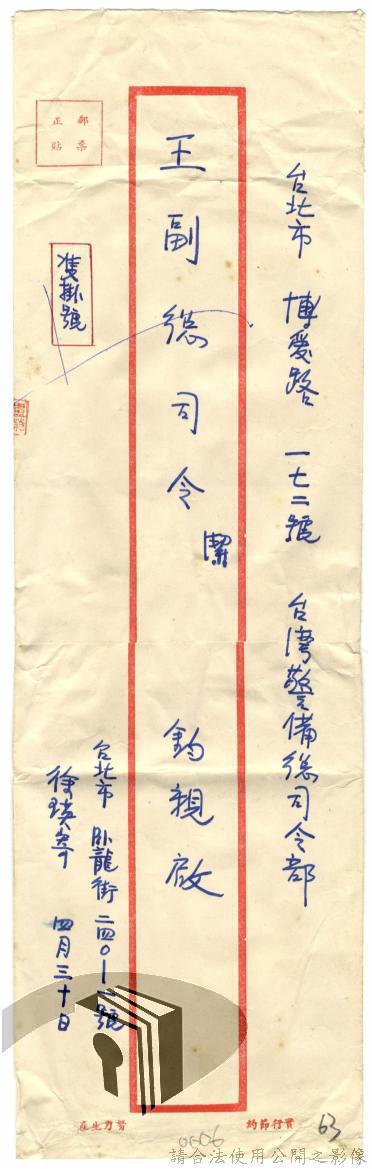 台北市 博愛路 一七二號 台灣警備總司令部
王副總司令 潔 鈞親啟
台北市 臥龍街 二四〇-一號
四月三十日
郵票
正貼
雙掛號
實行節約
努力生產
63
0606
請合法使用公開之影像